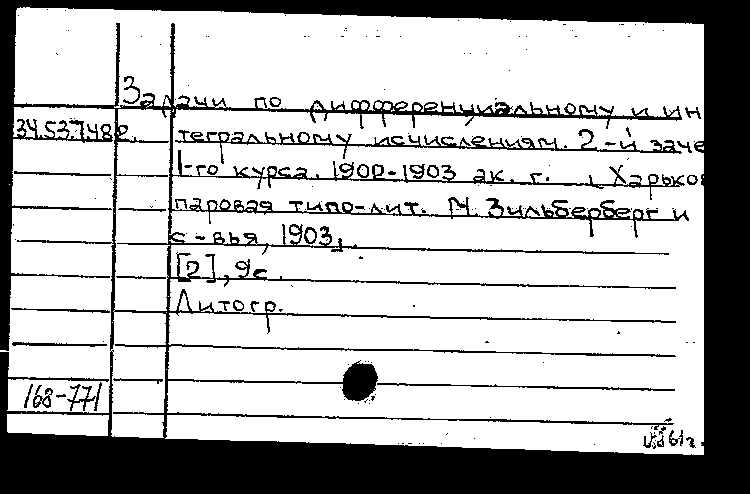 Задачи по дифференциальному и ин
34.53.7482. тегральному исчислениям. 2-й заче
1-го курса. 1902-1903 ак. г. Харьков
паровая типо-лит. М. Зильберберг и
с-вья, 1903.
[2], 9с.
Литогр.
168-771
61г.